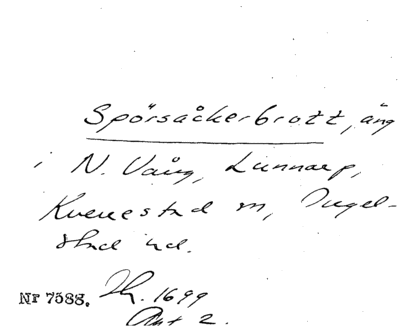 Spörsåkerbrott, äng
i N. Vång, Linnarp,
Kverrestad m, Ingel-
stad hd.
Nr 7588. Jb. 1699
Ant 2.